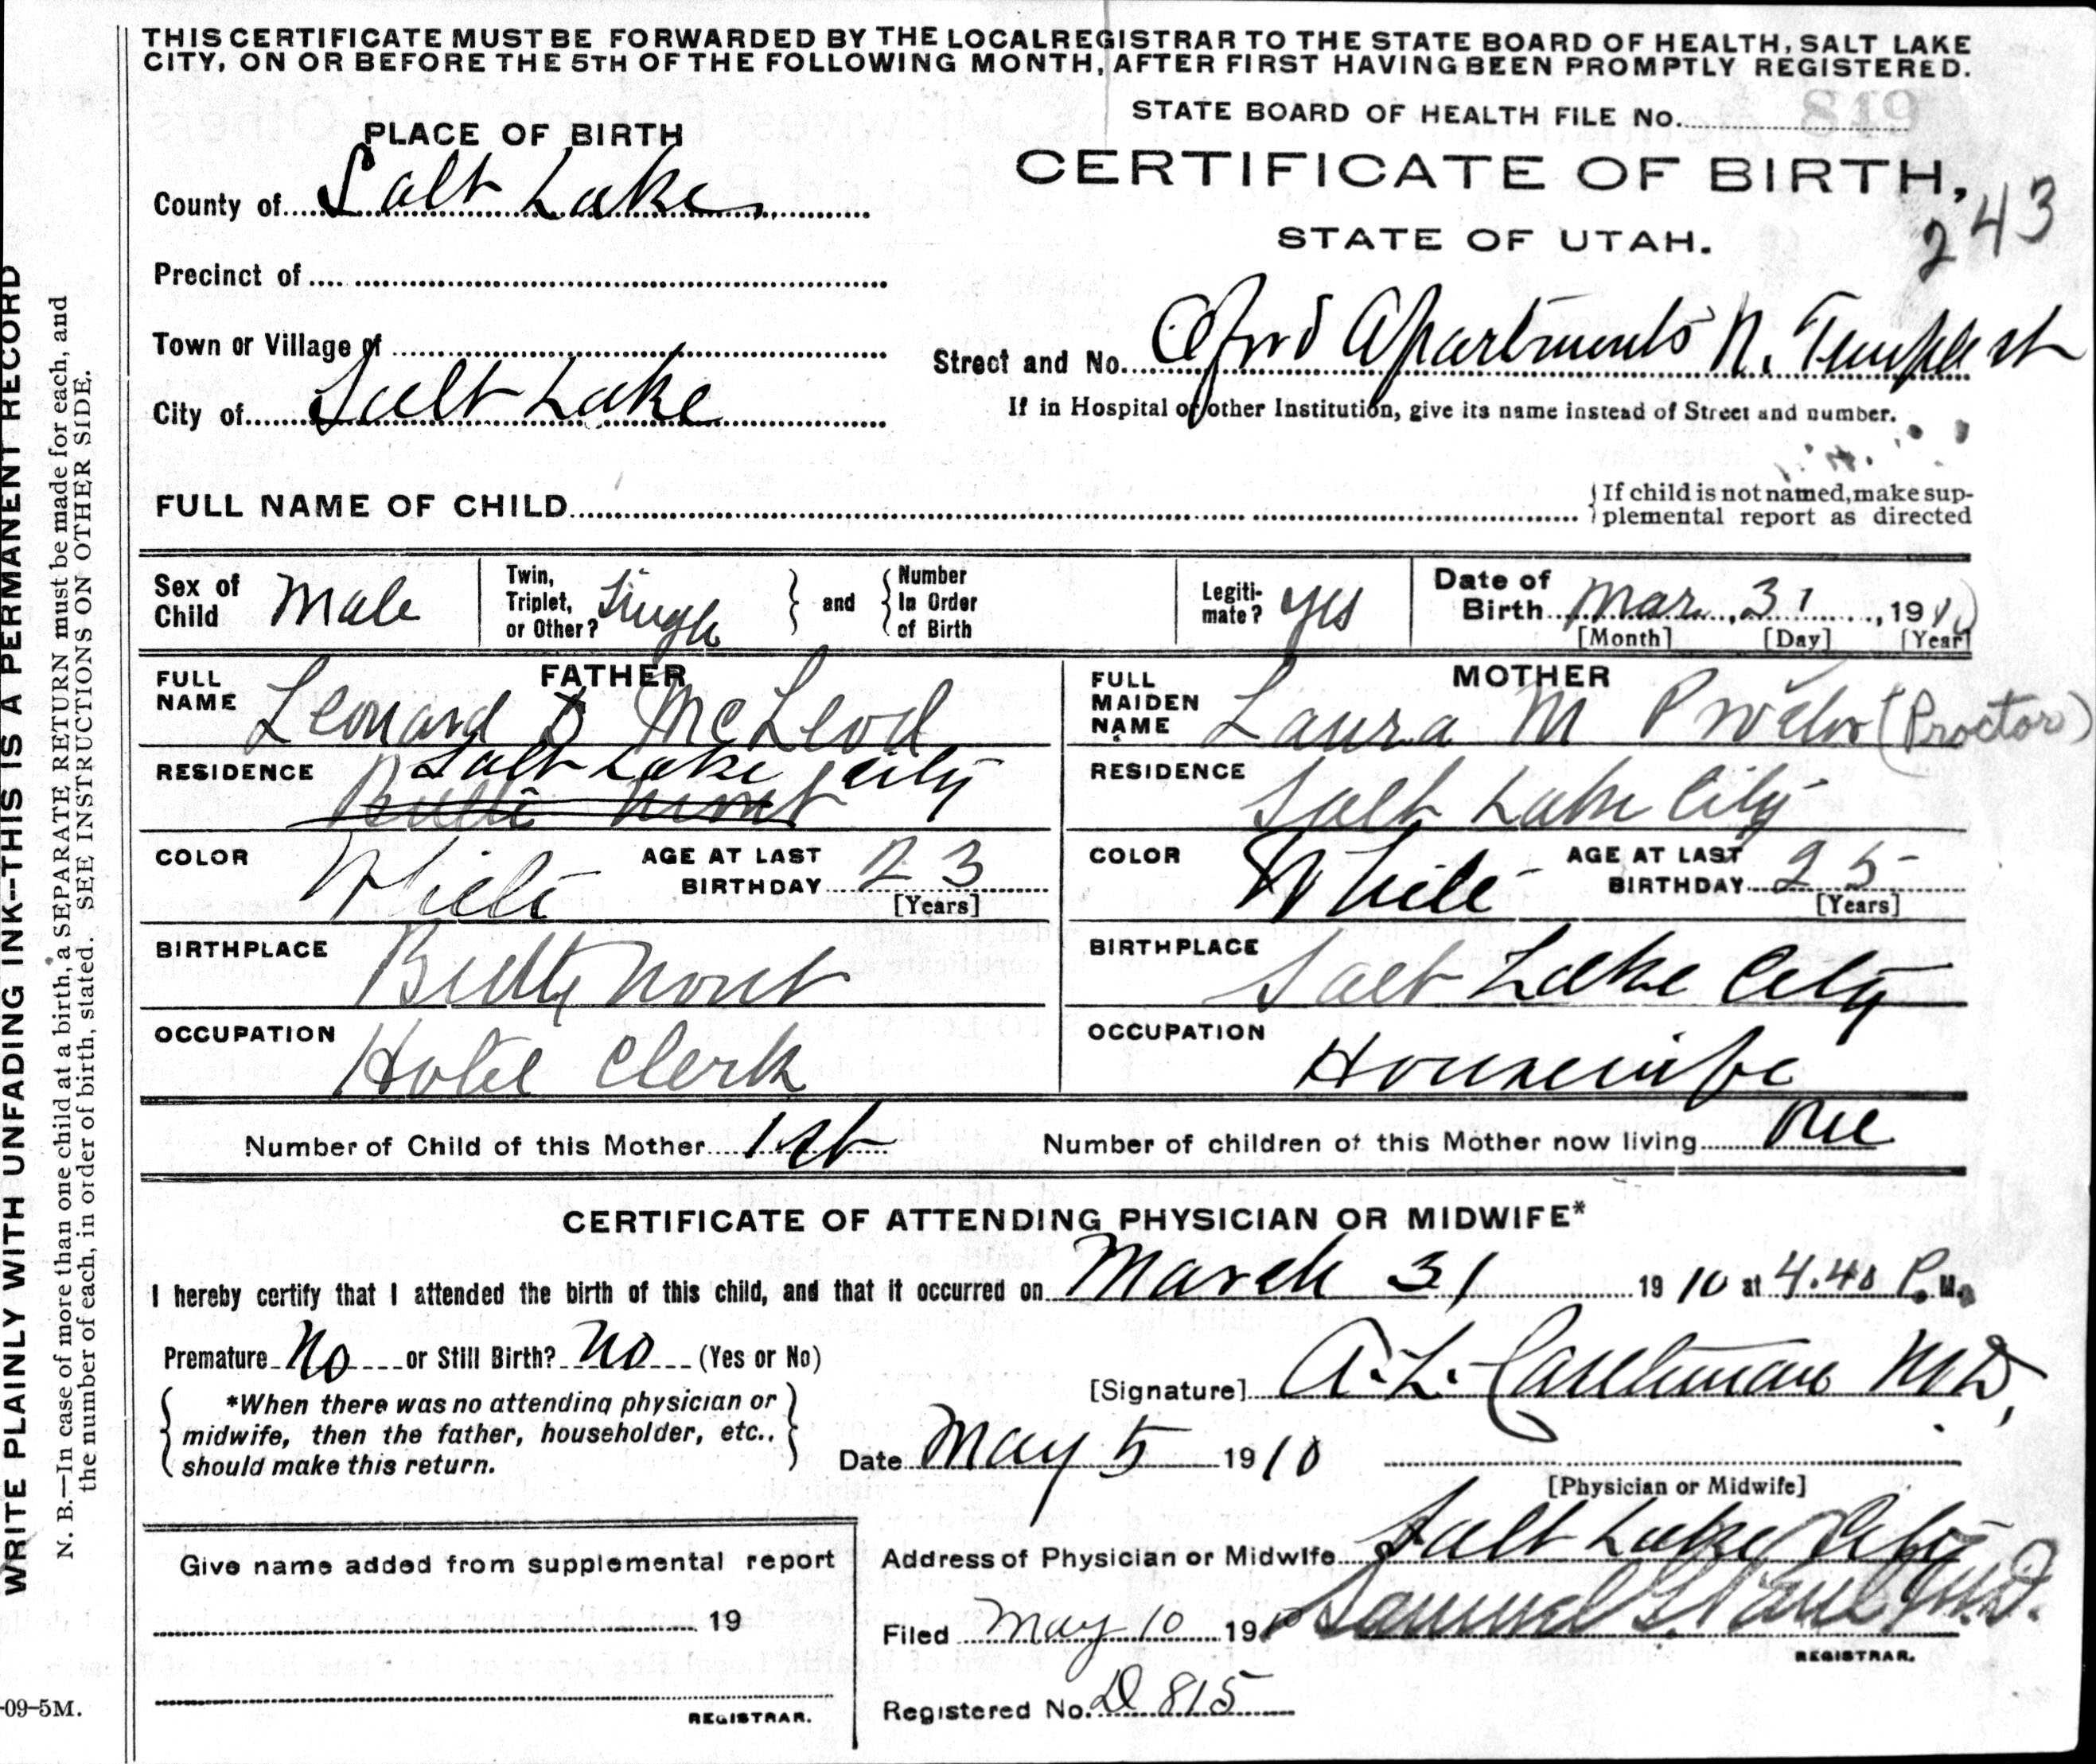 THIS CERTIFICATE MUST BE FORWARDED BY THE LOCAL REGISTRAR TO THE STATE BOARD OF HEALTH, SALT LAKE
CITY, ON OR BEFORE THE 5TH OF THE FOLLOWING MONTH, AFTER FIRST HAVING BEEN PROMPTLY REGISTERED.
STATE BOARD OF HEALTH FILE No. 849
PLACE OF BIRTH
CERTIFICATE OF BIRTH,
243
County of Salt Lake
STATE OF UTAH.
Precinct of
Town or Village of
Street and No. Apartments N. Temple st
City of Salt Lake
If in Hospital or other Institution, give its name instead of Street and number.
FULL NAME OF CHILD
If child is not named, make sup-
plemental report as directed
Sex of Child Male
Twin, Triplet, or Other? Single and Number In Order of Birth
Legiti-mate? yes
Date of Birth Mar. 31, 1910
[Month] [Day] [Year]
FATHER
FULL NAME Leonard D McLeod
RESIDENCE Salt Lake City
Butte Mont
COLOR White AGE AT LAST BIRTHDAY 23
[Years]
BIRTHPLACE Butty Mont
OCCUPATION Hotel Clerk
MOTHER
FULL MAIDEN NAME Laura M Procter (Proctor)
RESIDENCE Salt Lake City
COLOR White AGE AT LAST BIRTHDAY 25
[Years]
BIRTHPLACE Salt Lake City
OCCUPATION Housewife
Number of Child of this Mother 1st Number of children of this Mother now living One
CERTIFICATE OF ATTENDING PHYSICIAN OR MIDWIFE*
I hereby certify that I attended the birth of this child, and that it occurred on March 31 1910 at 4.40 P. M.
Premature No or Still Birth? No (Yes or No)
[Signature] A. L. Castleman M D,
*When there was no attending physician or
midwife, then the father, householder, etc.,
should make this return.
Date May 5 1910
[Physician or Midwife]
Give name added from supplemental report
19
REGISTRAR.
Address of Physician or Midwife Salt Lake City
Filed May 10 1910 Samuel G. Paul M.D.
REGISTRAR.
Registered No. D 815
WRITE PLAINLY WITH UNFADING INK--THIS IS A PERMANENT RECORD
N. B.—In case of more than one child at a birth, a SEPARATE RETURN must be made for each, and
the number of each, in order of birth, stated. SEE INSTRUCTIONS ON OTHER SIDE.
-09-5M.